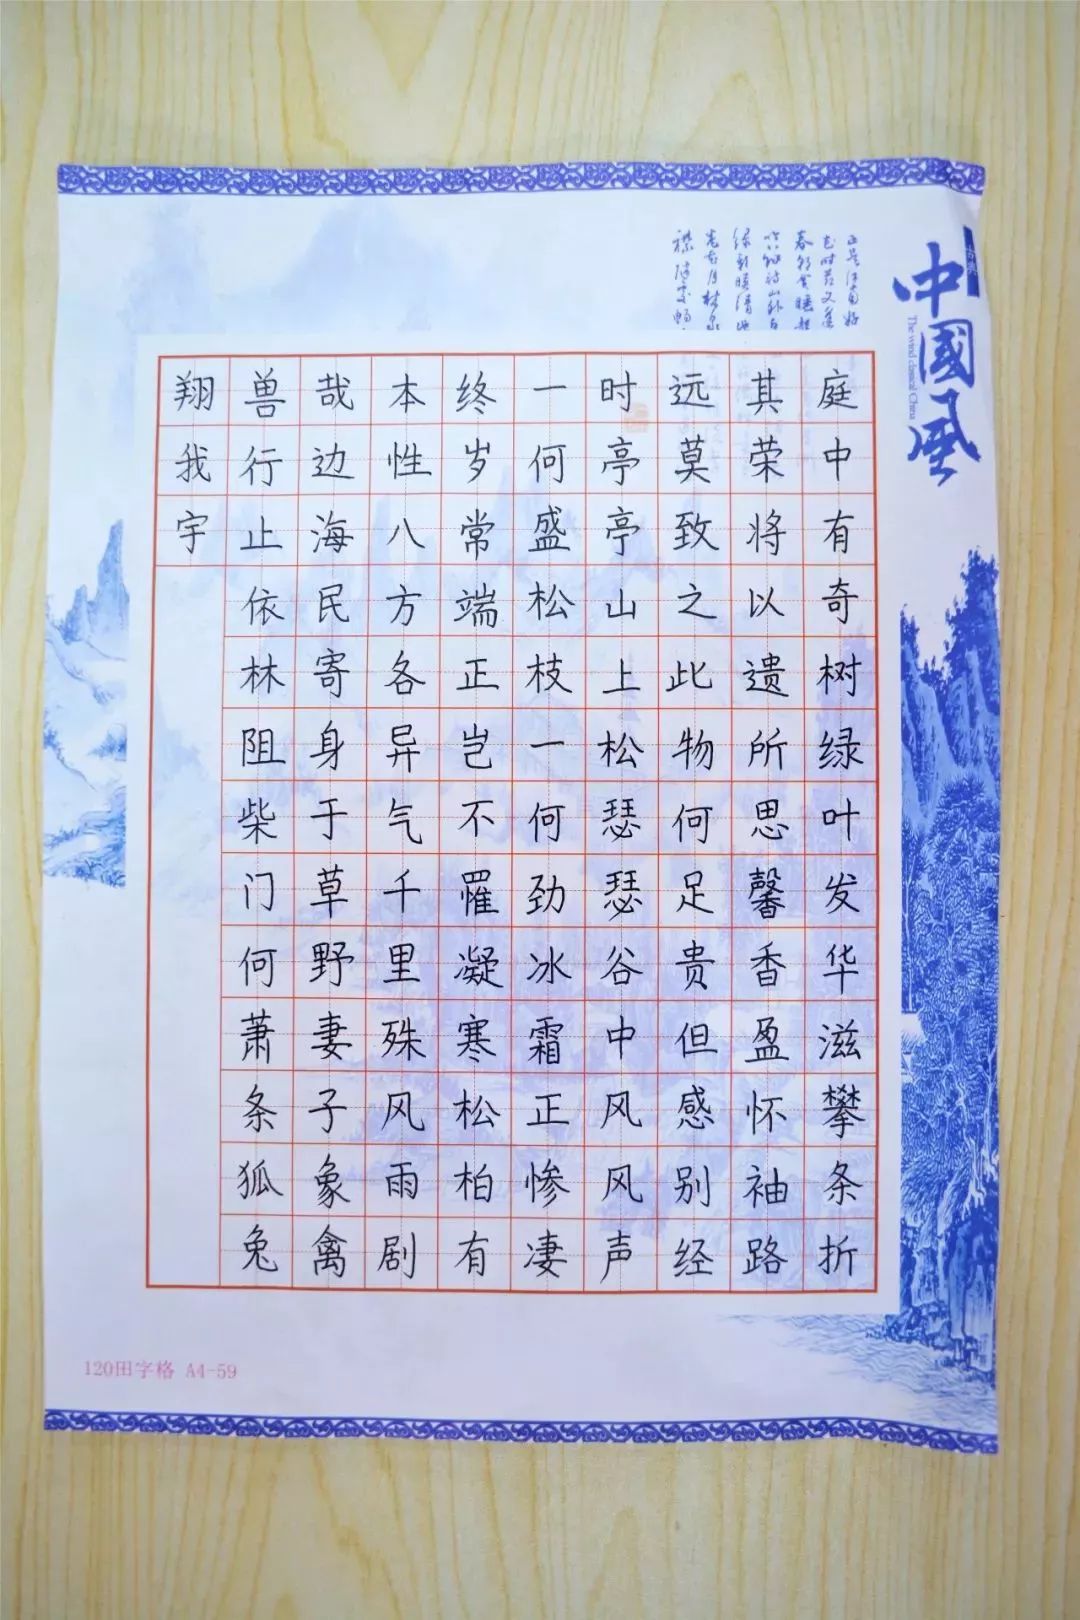 庭中有奇树绿叶发华滋攀条折
其荣将以遗所思馨香盈怀袖路
远莫致之此物何足贵但感别经
时亭亭山上松瑟瑟谷中风风声
一何盛松枝一何劲冰霜正惨凄
终岁常端正岂不罹凝寒松柏有
本性八方各异气千里殊风雨剧
哉边海民寄身于草野妻子象禽
兽行止依林阻柴门何萧条狐兔
翔我宇
中國風
The wind classical China
120田字格 A4-59